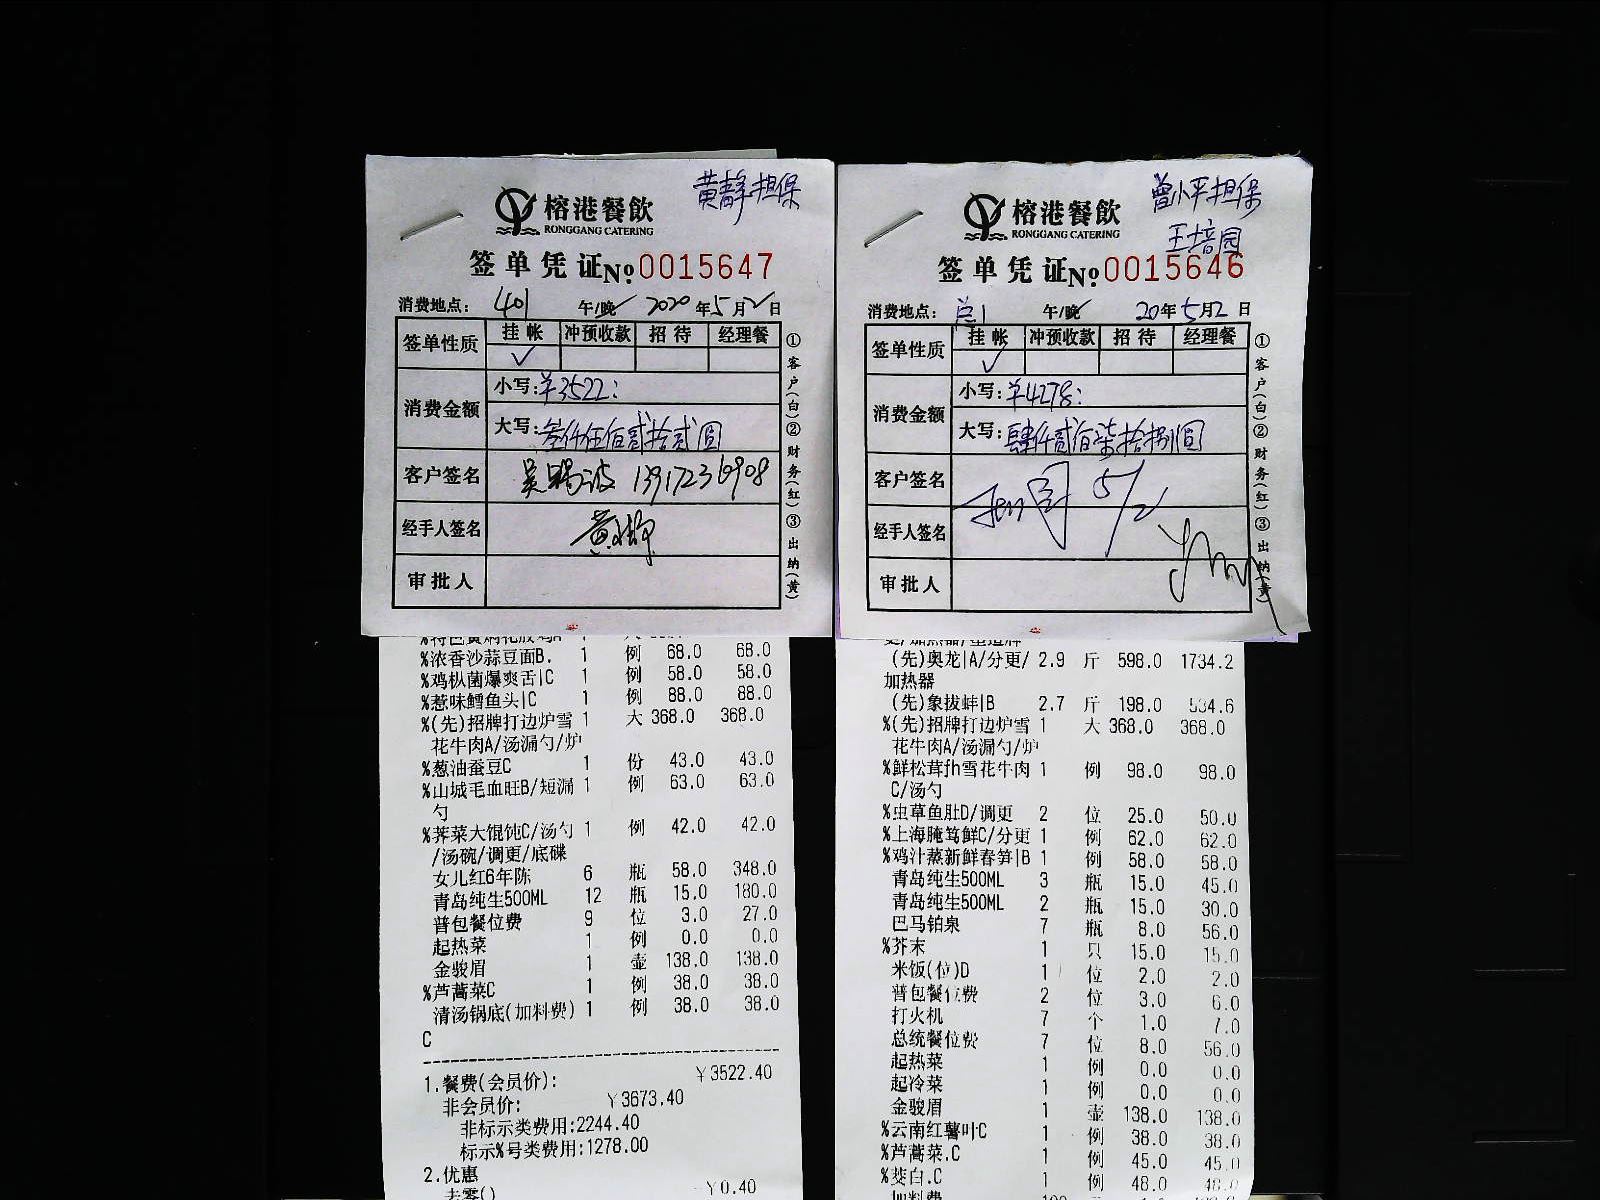 黄静担保
榕港餐飲
RONGGANG CATERING
签单凭证 No 0015647
消费地点: 401 午/晚 2020年5月2日
签单性质 挂帐 冲预收款 招待 经理餐
✓
消费金额 小写:¥3522:
大写:叁仟伍佰贰拾贰圆
客户签名 13917236908
经手人签名 黄静
审批人
①客户(白)②财务(红)③出纳(黄)
%浓香沙蒜豆面B. 1 例 68.0 68.0
%鸡枞菌爆爽舌|C 1 例 58.0 58.0
%惹味鳕鱼头|C 1 例 88.0 88.0
%(先)招牌打边炉雪 1 大 368.0 368.0
花牛肉A/汤漏勺/炉
%葱油蚕豆C 1 份 43.0 43.0
%山城毛血旺B/短漏 1 例 63.0 63.0
勺
%荠菜大馄饨C/汤勺 1 例 42.0 42.0
/汤碗/调更/底碟
女儿红6年陈 6 瓶 58.0 348.0
青岛纯生500ML 12 瓶 15.0 180.0
普包餐位费 9 位 3.0 27.0
起热菜 1 例 0.0 0.0
金骏眉 1 壶 138.0 138.0
%芦蒿菜C 1 例 38.0 38.0
清汤锅底(加料费) 1 例 38.0 38.0
C
1.餐费(会员价): ¥3522.40
非会员价: ¥3673.40
非标示类费用:2244.40
标示%号类费用:1278.00
2.优惠
去零() -¥0.40
曾小平担保
王培园
榕港餐飲
RONGGANG CATERING
签单凭证 No 0015646
消费地点: 总1 午/晚 2020年5月2日
签单性质 挂帐 冲预收款 招待 经理餐
✓
消费金额 小写:¥4278:
大写:肆仟贰佰柒拾捌圆
客户签名 5/2
经手人签名
审批人
①客户(白)②财务(红)③出纳(黄)
(先)奥龙|A/分更/ 2.9 斤 598.0 1734.2
加热器
(先)象拔蚌|B 2.7 斤 198.0 534.6
%(先)招牌打边炉雪 1 大 368.0 368.0
花牛肉A/汤漏勺/炉
%鲜松茸fh雪花牛肉 1 例 98.0 98.0
C/汤勺
%虫草鱼肚D/调更 2 位 25.0 50.0
%上海腌笃鲜C/分更 1 例 62.0 62.0
%鸡汁蒸新鲜春笋|B 1 例 58.0 58.0
青岛纯生500ML 3 瓶 15.0 45.0
青岛纯生500ML 2 瓶 15.0 30.0
巴马铂泉 7 瓶 8.0 56.0
%芥末 1 只 15.0 15.0
米饭(位)D 1 位 2.0 2.0
普包餐位费 2 位 3.0 6.0
打火机 7 个 1.0 7.0
总统餐位费 7 位 8.0 56.0
起热菜 1 例 0.0 0.0
起冷菜 1 例 0.0 0.0
金骏眉 1 壶 138.0 138.0
%云南红薯叶C 1 例 38.0 38.0
%芦蒿菜.C 1 例 45.0 45.0
%茭白.C 1 例 48.0 48.0
加料费